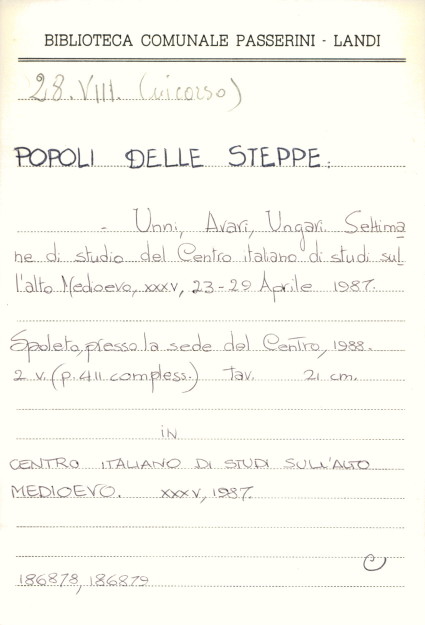 BIBLIOTECA COMUNALE PASSERINI - LANDI
28.VIII. (in corso)
POPOLI DELLE STEPPE:
- Unni, Avari, Ungari. Settima
ne di studio del Centro italiano di studi sul
l'alto Medioevo, XXXV, 23-29 Aprile 1987.
Spoleto, presso la sede del Centro, 1988.
2 v. (p. 411 compless.) tav. 21 cm.
in
CENTRO ITALIANO DI STUDI SULL'ALTO
MEDIOEVO. XXXV, 1987.
C
186878, 186879